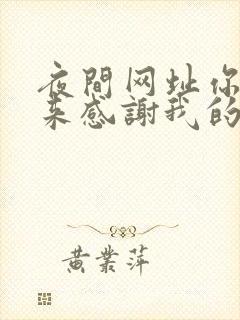 夜間网址你
来感謝我的
黄業萍